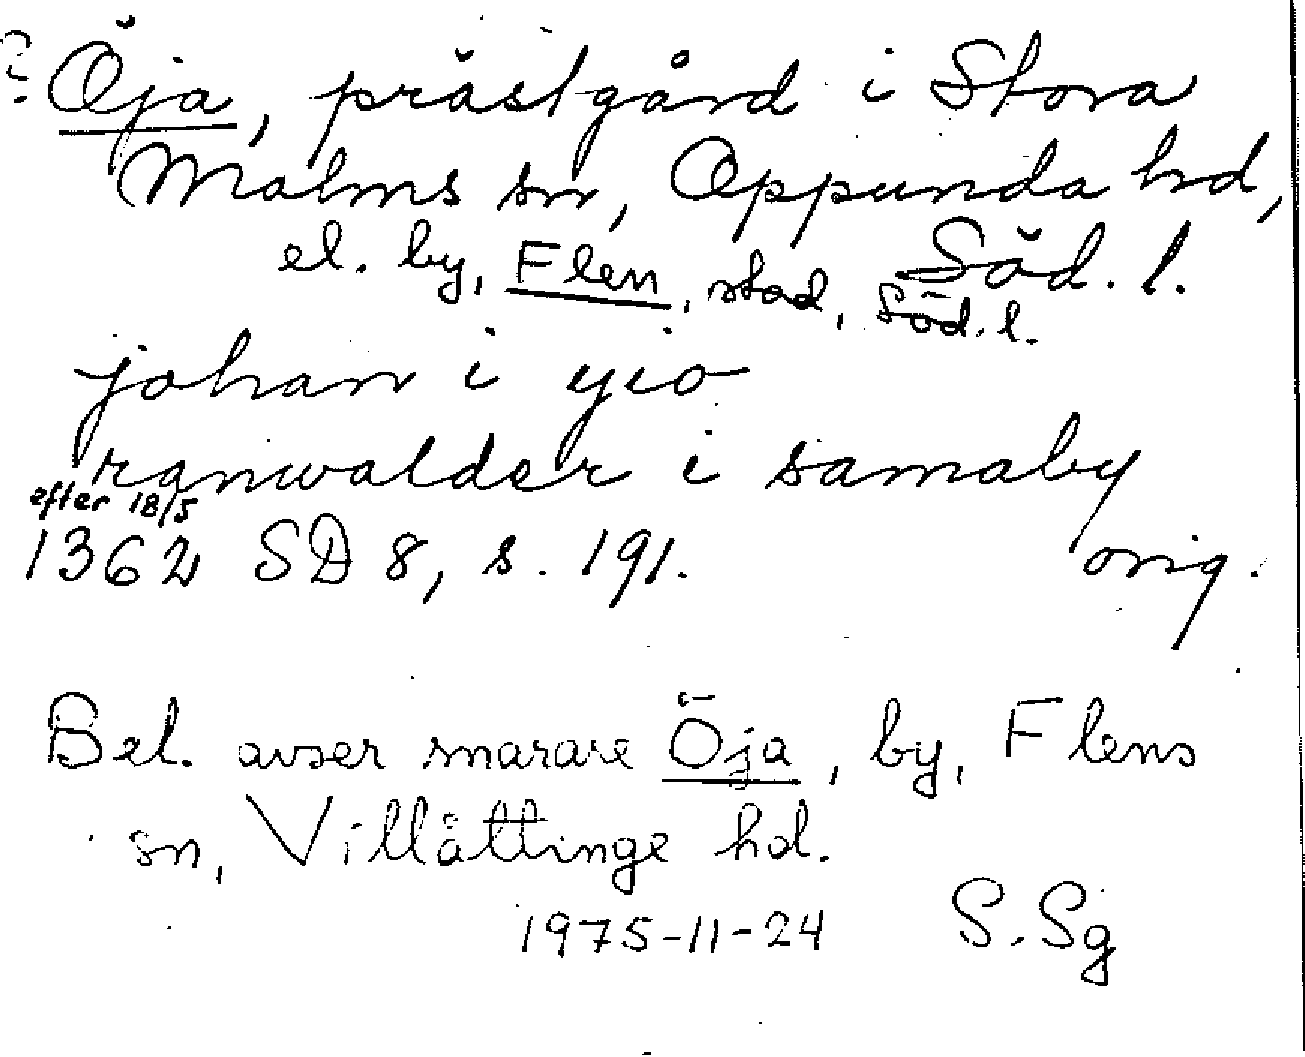 ? Öja, prästgård i Stora
Malms sn, Oppunda hd,
Söd. l.
el. by, Flen, stad, Söd. l.
johan i yio
ranwalder i samaby
efter 18/5
1362 SD 8, s. 191. orig.
Bel. avser snarare Öja, by, Flens
sn, Villåttinge hd.
1975-11-24 S. Sg